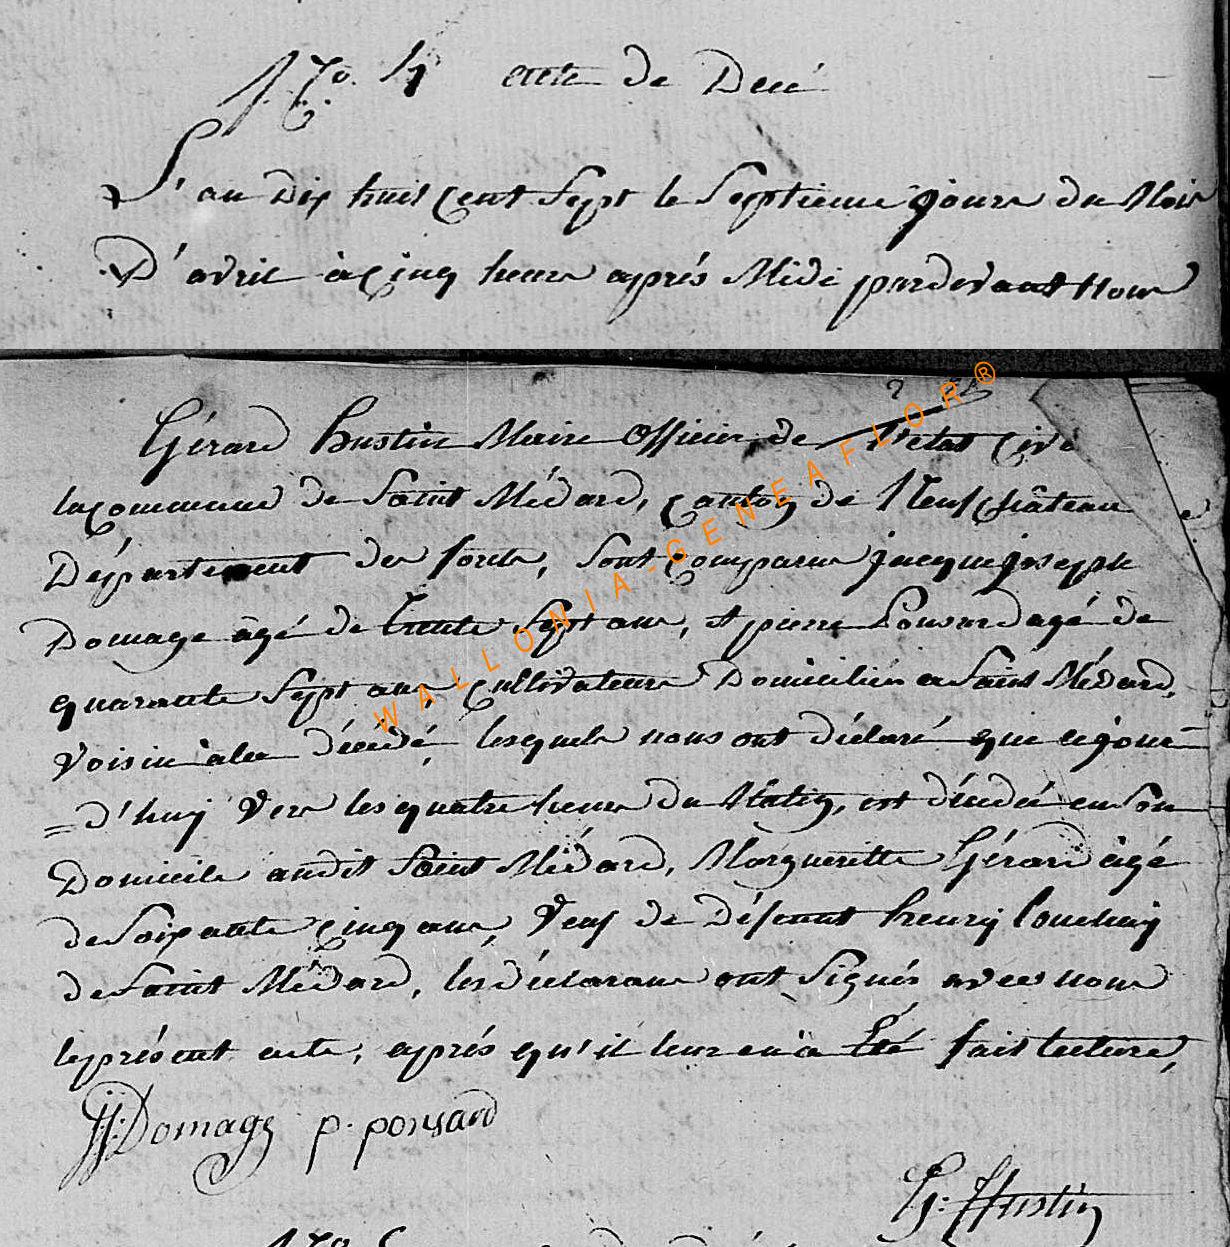 N.o 4 acte de Decé
L'an dix huit cent sept le septieme jours du Mois
D'avril à cinq heures après Midi pardevant nous
Gérard hustin Maire officier de l'etat civi
la commune de Saint Médard, canton de Neufchâteau
Département des forets, sont comparus jacque joseph
Domage agé de trente sept ans, et pierre Ponsard agé de
quarante sept ans, cultivateurs Domiciliés a Saint Médard,
voisin à la décédé, lesquels nous ont déclaré que cejour=
=d'huy vers les quatre heures du Matin, est décédée en son
Domicile audit Saint Médard, Margueritte Gérard âgé
de soixante cinq ans, veuf de Défeunt henry Louchuy
de Saint Médard, les déclarans ont signés avec nous
le présent acte, après qu'il leur en à été fait lecture,
JJ: Domage p. ponsard
G: Hustin
WALLONIA-GENEAFLOR®